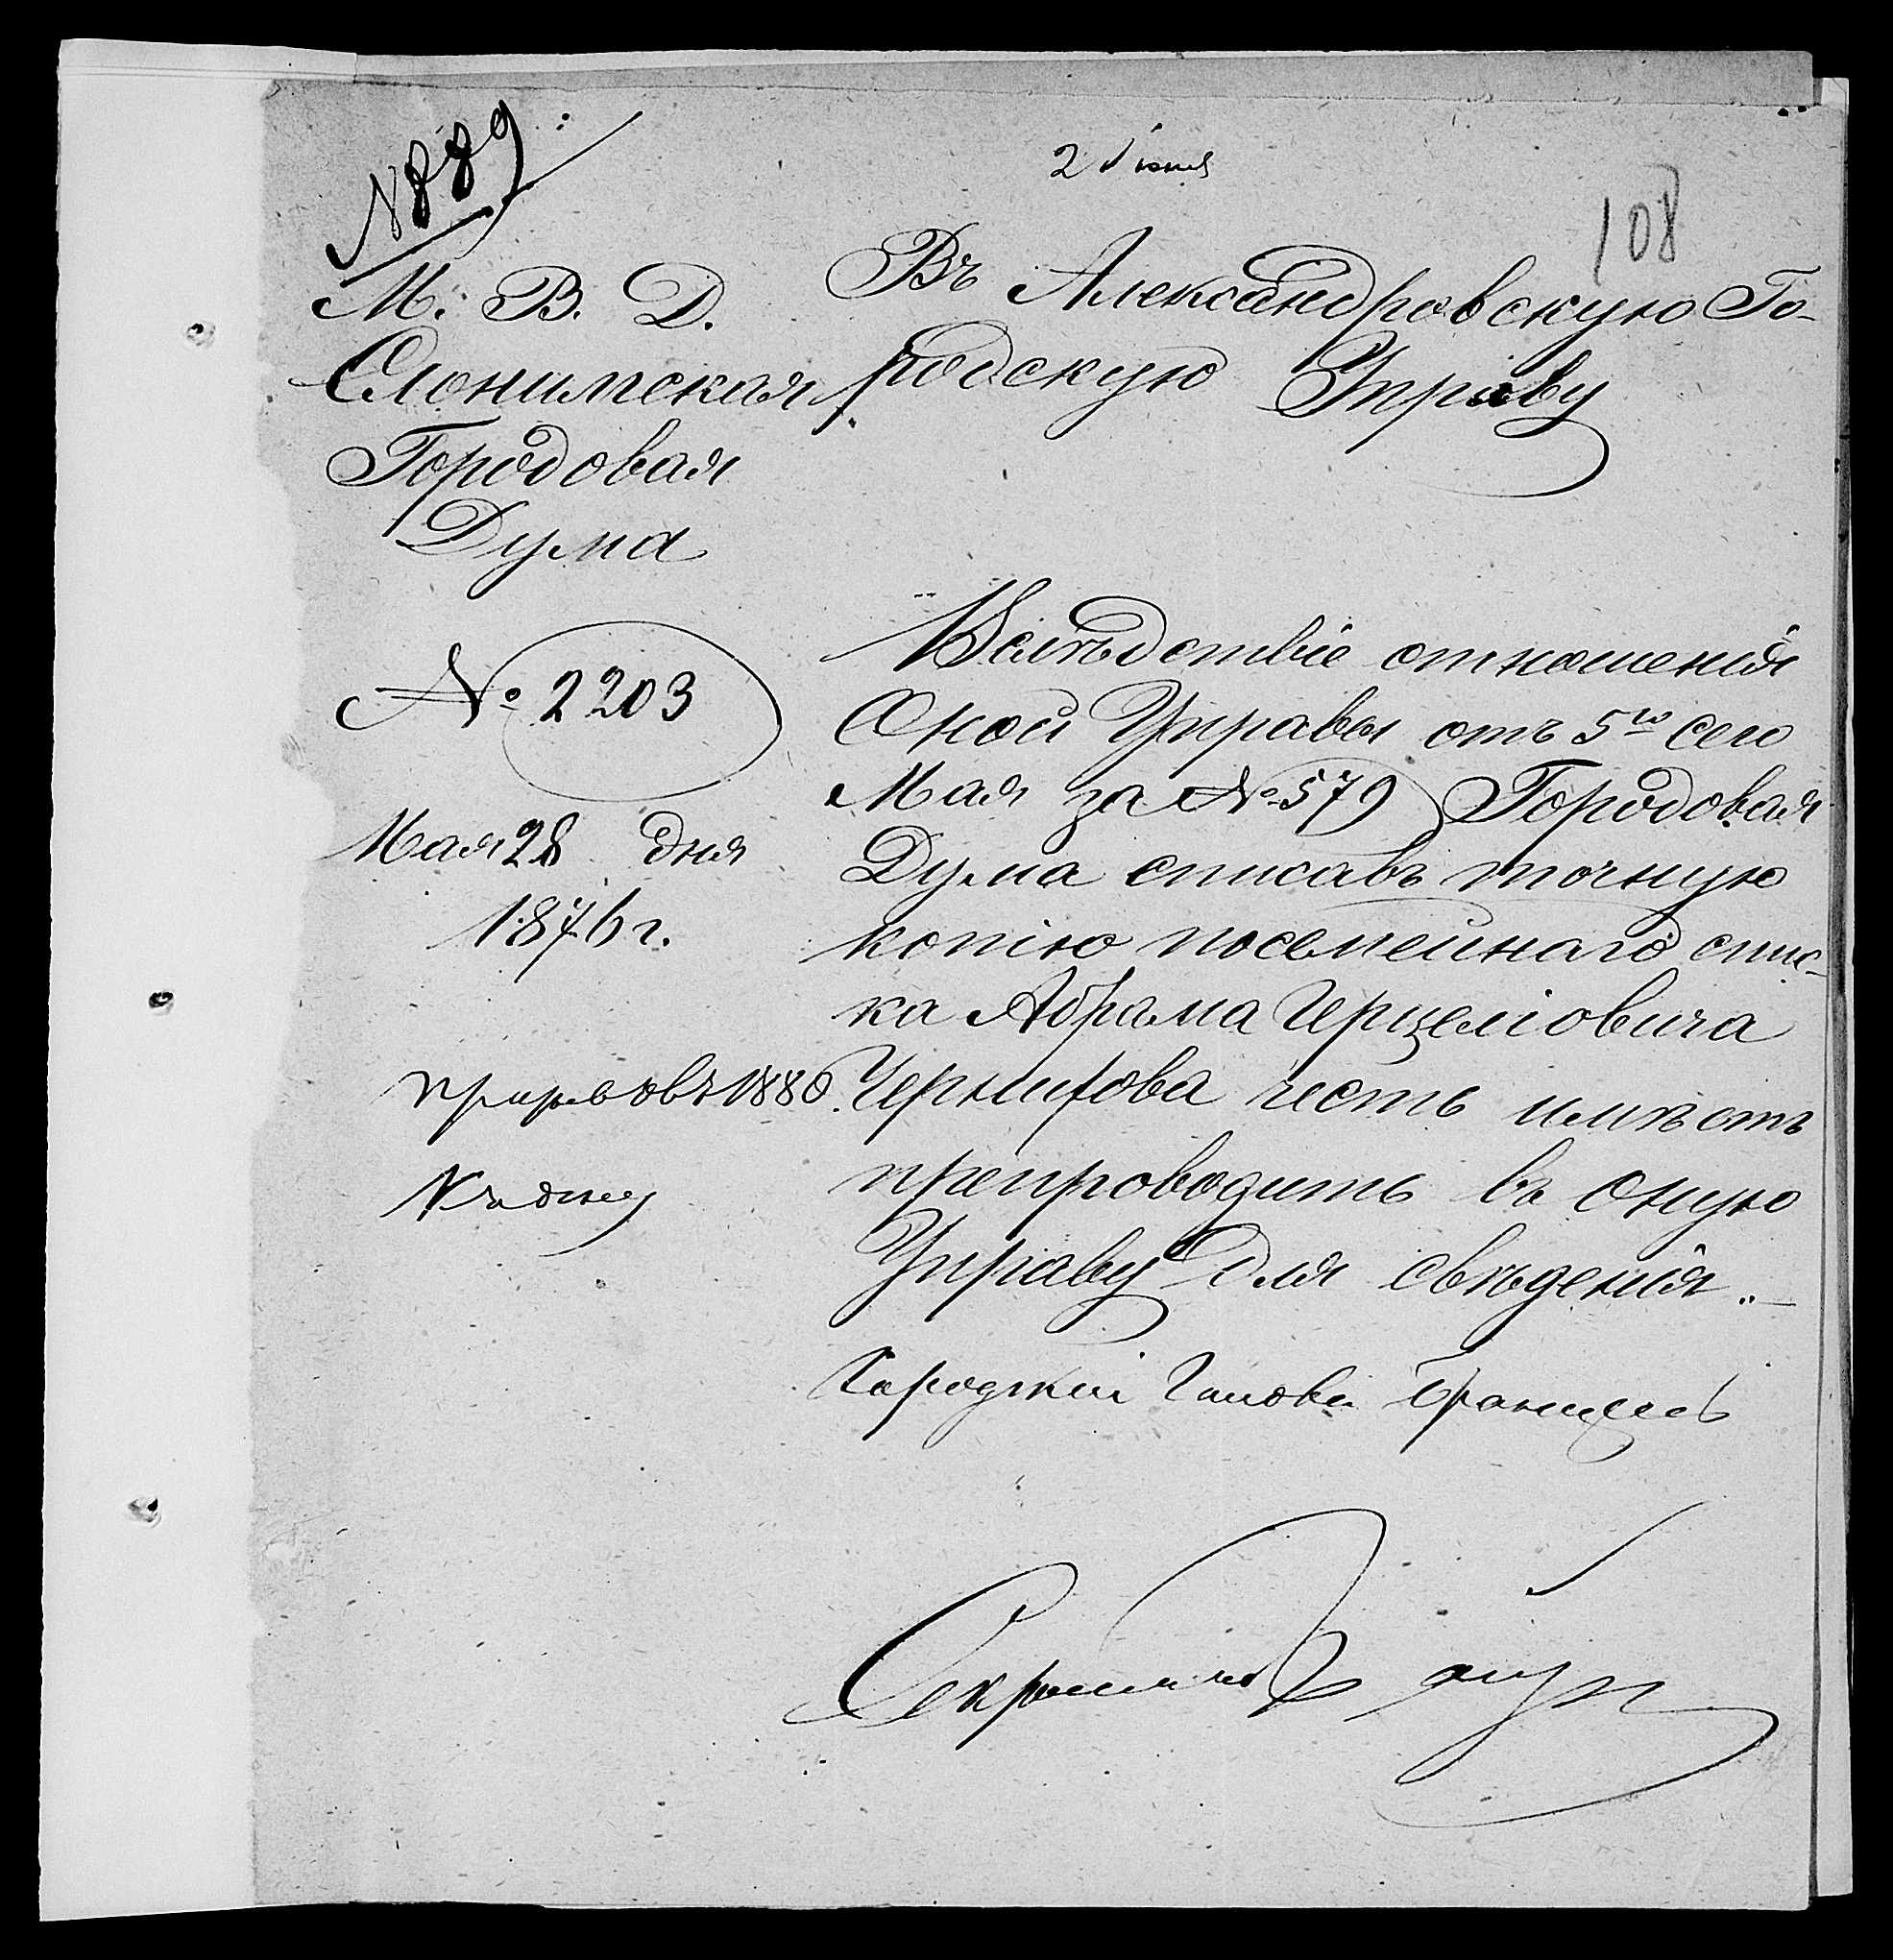 № 889
2 Іюня
108
М. В. Д.
Слонимская
Городовая
Дума
№ 2203
Мая 28 дня
1876 г.
1880
Къ дѣлу
Въ Александровскую Го-
родскую Управу
Вслѣдствіе отношенія
Оной Управы отъ 5го сего
Мая за № 579 Городовая
Дума списавъ точную
копію посемейнаго спис-
ка Абрама Герцеліовича
честь имѣетъ
препроводить въ оную
Управу для свѣденія.
Городской Голова
Секретарь